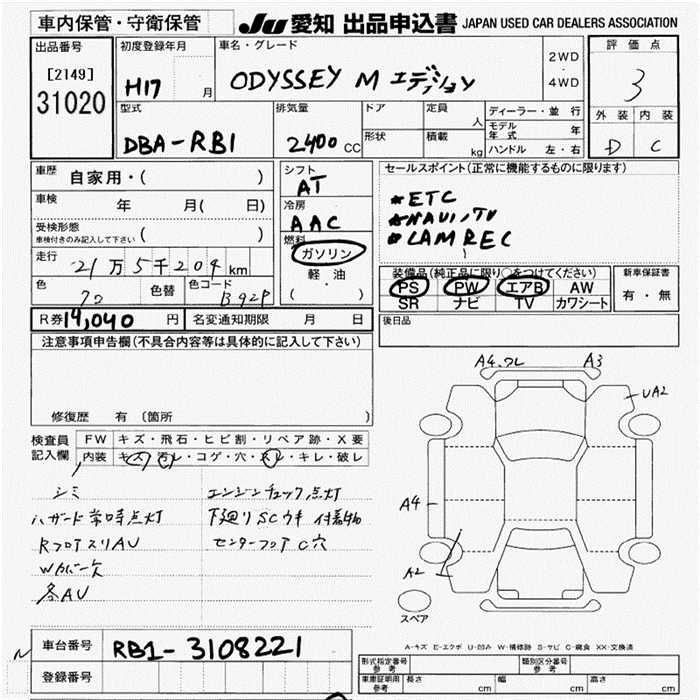 車内保管・守衛保管
JU 愛知 出品申込書 JAPAN USED CAR DEALERS ASSOCIATION
出品番号
[2149]
31020
初度登録年月
H17 月
車名・グレード
ODYSSEY M エディション
2WD
・
4WD
評価点
3
外装 内装
D C
型式
DBA-RB1
排気量
2400 cc
ドア
形状
定員
人
積載
kg
ディーラー・並行
モデル年式 年
ハンドル 左・右
車歴
自家用・( )
車検
年 月( 日)
受検形態
車検付きのみ記入して下さい ( )
走行
21万5千209 km
色
色替
色コード
B92P
シフト
AT
冷房
AAC
燃料
ガソリン
軽油
( ・ )
セールスポイント(正常に機能するものに限ります)
*ETC
*NAVI,TV
*CAMREC
装備品(純正品に限り○をつけてください)
PS PW エアB AW
SR ナビ TV カワシート
新車保証書
有・無
R券 19,040 円 名変通知期限 月 日
後日品
注意事項申告欄(不具合内容等は具体的に記入して下さい)
修復歴 有 〔箇所
検査員記入欄
FW キズ・飛石・ヒビ割・リペア跡・X要
内装 キズ・汚レ・コゲ・穴・スレ・キレ・破レ
シミ
ハザード常時点灯
RフロアスリAU
Wカバー欠
各AU
エンジンチェック点灯
下廻りSCウキ 付着物
センターフロアC穴
A4.ワレ A3
UA2
A4
A2
スペア
A-キズ E-エクボ U-凹み W-補修跡 S-サビ C-腐食 XX-交換済
車台番号
RB1-3108221
登録番号
形式指定番号
参考
類別区分番号
参考
車庫証明用
参考
長さ cm 幅 cm 高さ cm